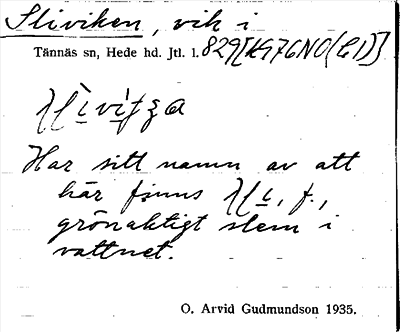 Sliviken, vik i
Tännäs sn, Hede hd. Jtl. 1. 829[HG76NO(C1)]
Har sitt namn av att
här finns f.,
grönaktigt slem i
vattnet.
O. Arvid Gudmundson 1935.